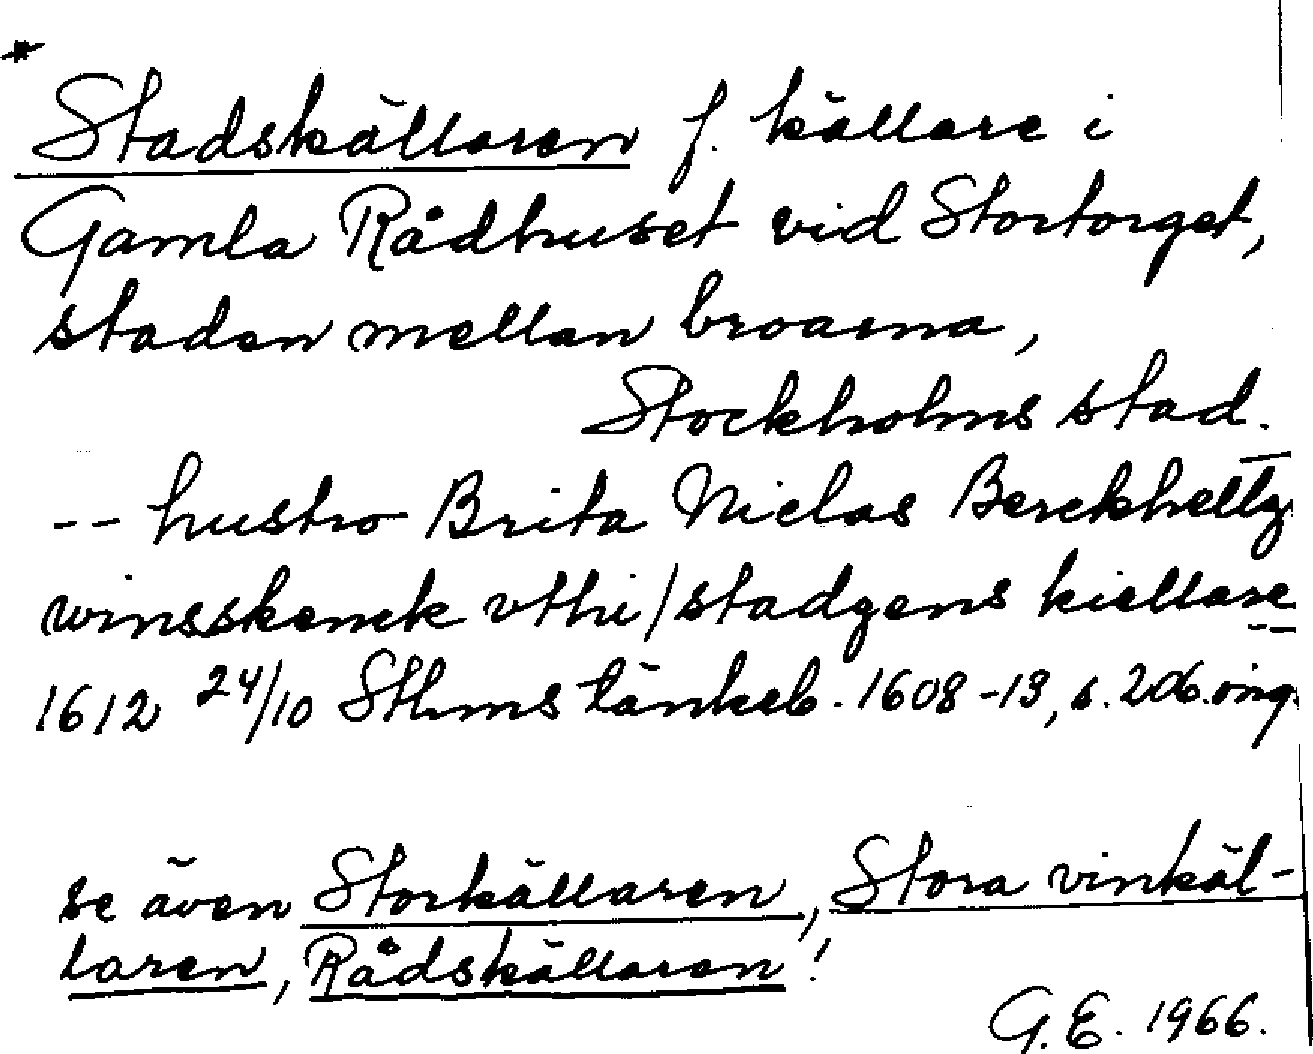 * Stadskällaren f. källare i
Gamla Rådhuset vid Stortorget,
staden mellan broarna,
Stockholms stad.
-- hustro Brita Niclas Berckheltz
winsskenck vthi/stadzens kiellare --
1612 24/10 Sthms tänkeb. 1608-13, s. 206. öing.
se även Storkällaren, Stora vinkäl-
laren, Rådskällaren!
G.E. 1966.